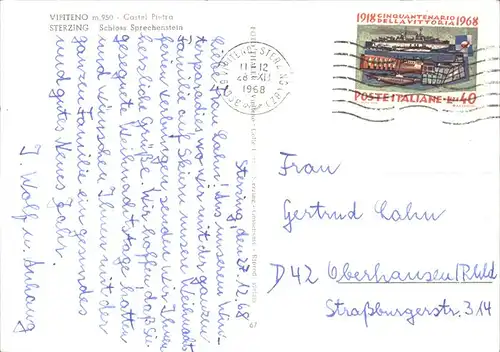 VIPITENO m. 950 - Castel Pietra
STERZING Schloss Sprechenstein
Sterzing, den 27.12.68
Liebe Frau Lahn! Aus unserem Win-
terparadies wo wir mit der ganzen
Familie auf Skiern unsere Weihnachts
feien verbringen senden wir Ihnen
herzliche Grüße. Wir hoffen daß Sie
gesegnete Weihnachtstage hatten
und wünschen Ihnen mit der
ganzen Familie ein gesundes
und gutes Neues Jahr.
J. Wolf u. Anhang
67
VIPITENO - STERZING
11-12
28 XII
1968
1918 CINQUANTENARIO 1968
DELLA VITTORIA
POSTE ITALIANE L. 40
Frau
Gertrud Lahn
D42 Oberhausen/Rhld
Straßburgerstr. 314